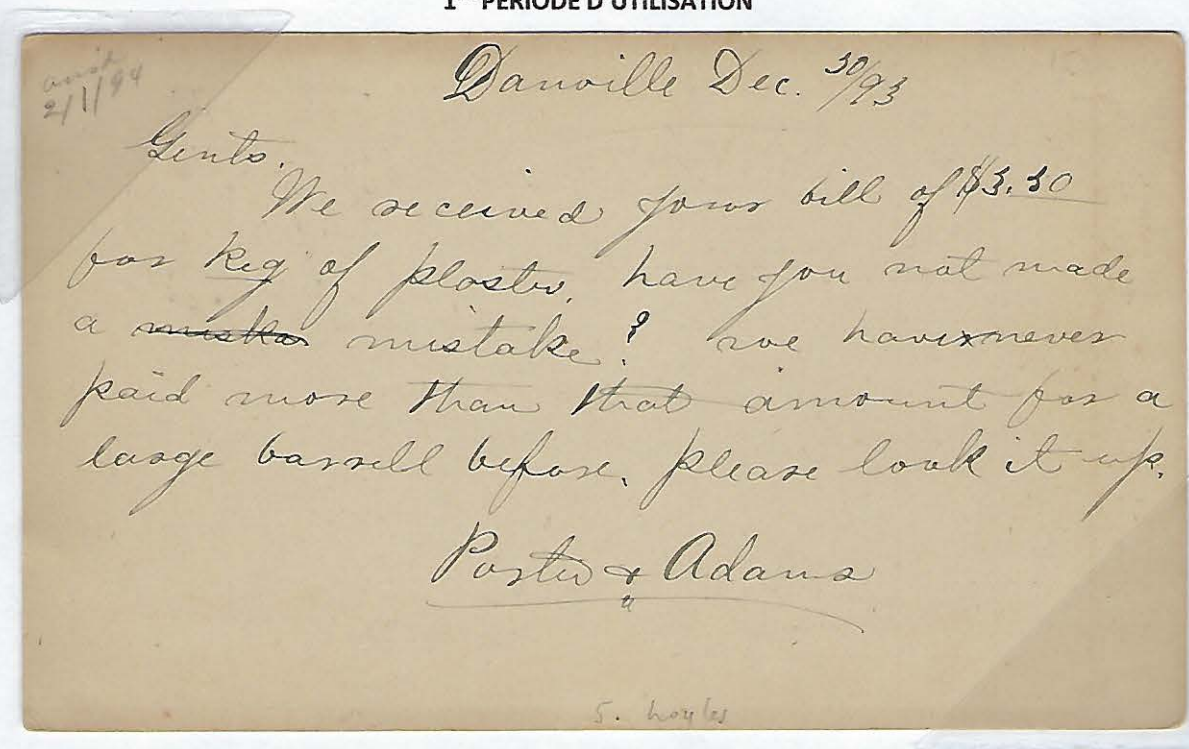 1 PÉRIODE D'UTILISATION
2/1/94
Danville Dec. 30/93
Gents.
We received your bill of $3.30
for keg of plaster, have you not made
a mistake? we have never
paid more than that amount for a
large barrell before, please look it up.
Porter & Adams